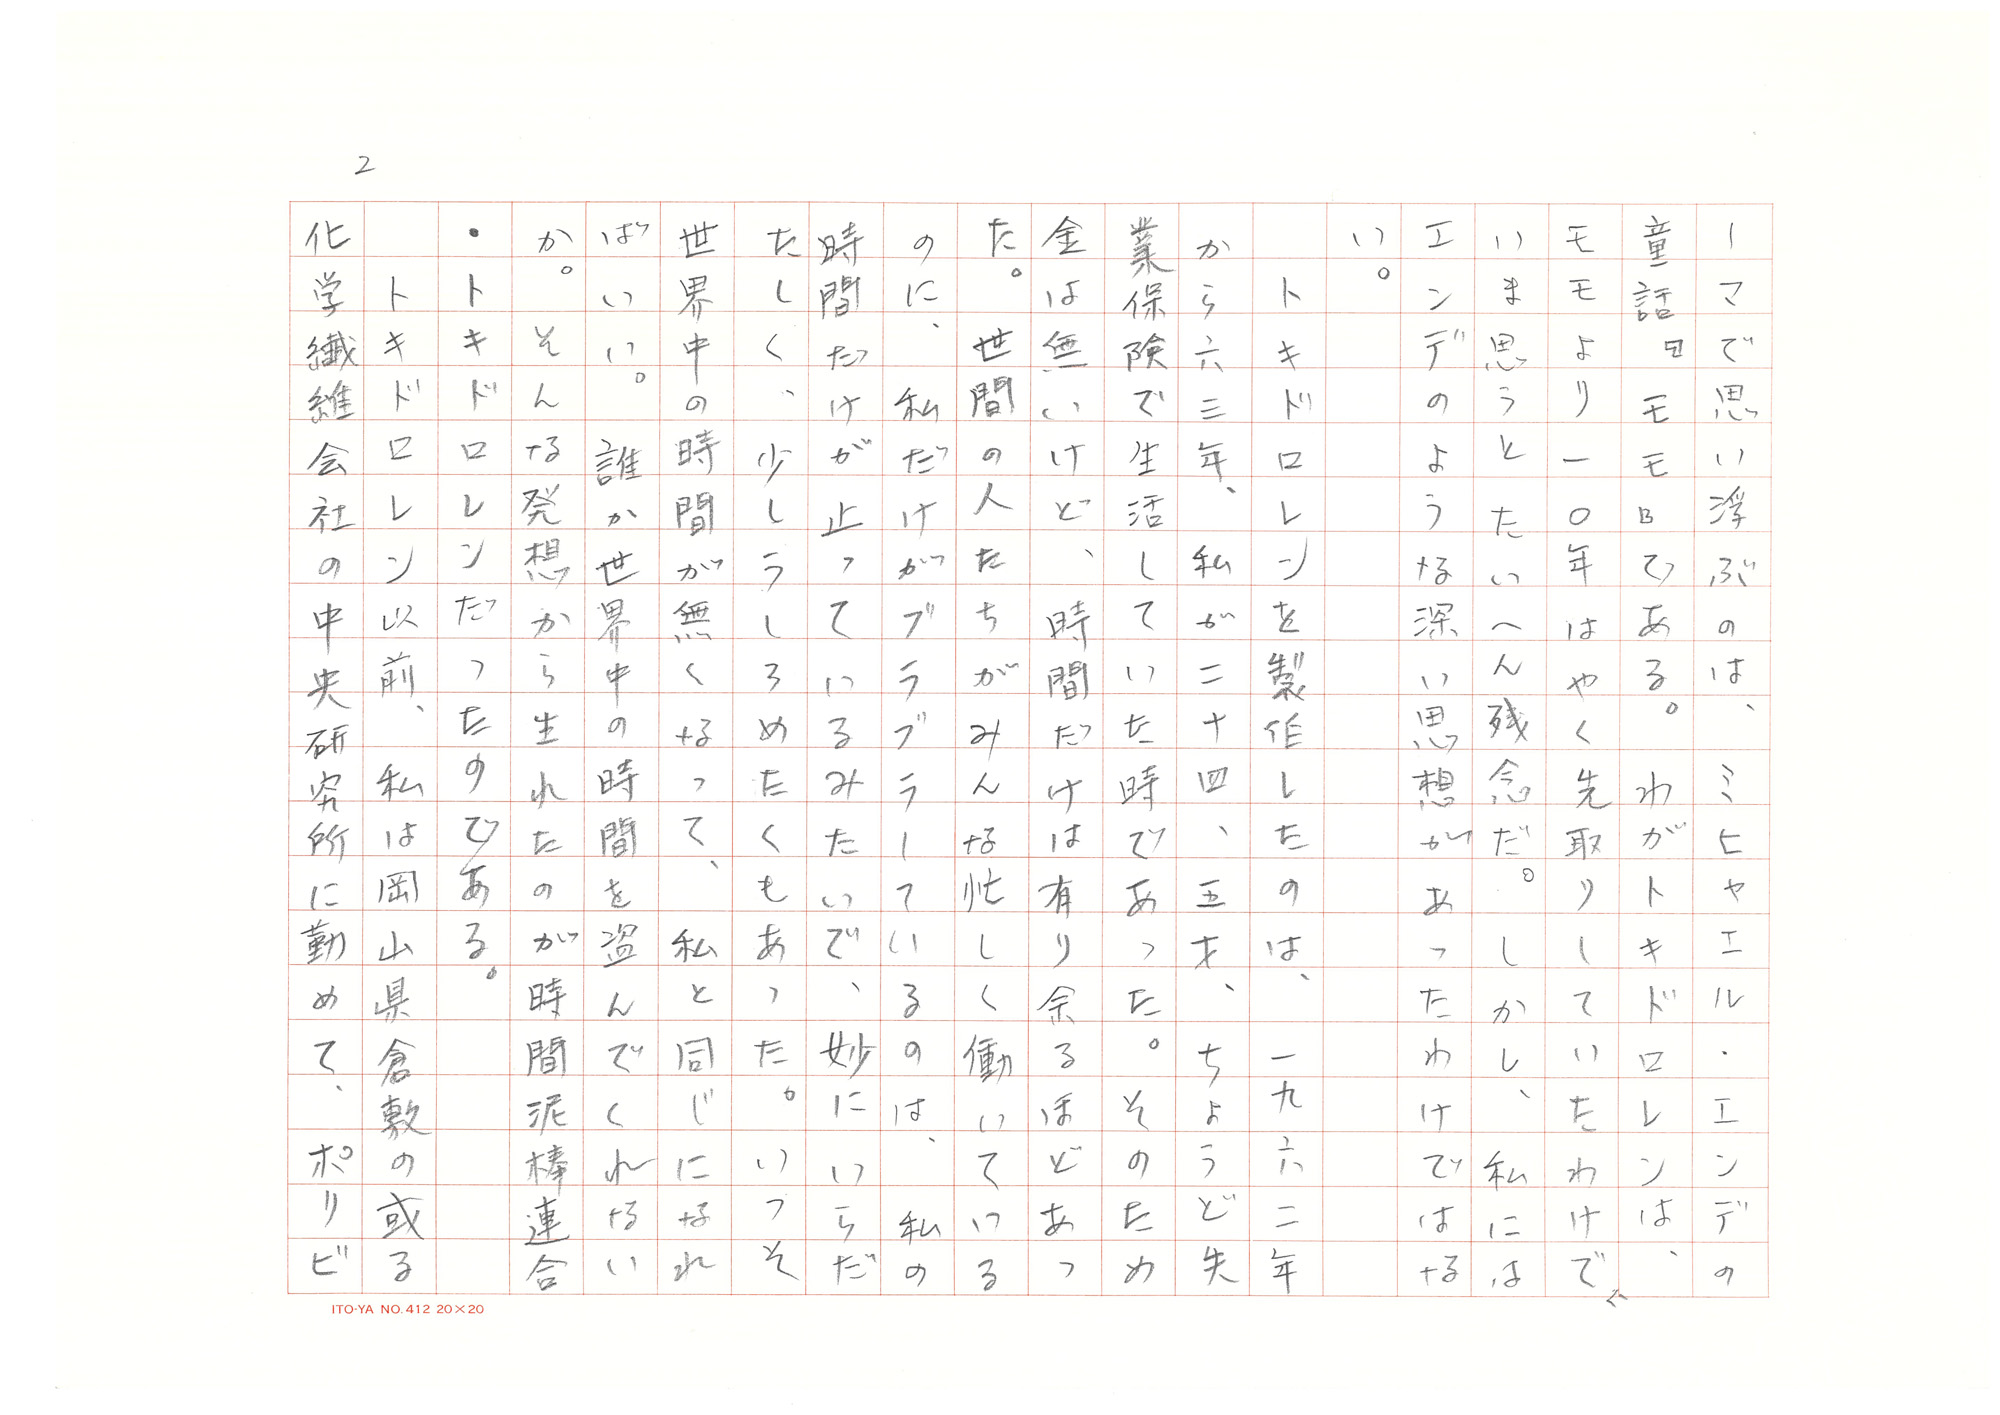 2
ーマで思い浮ぶのは、ミヒャエル・エンデの
童話『モモ』である。わがトキドロレンは、
モモより一〇年はやく先取りしていたわけで、
いま思うとたいへん残念だ。しかし、私には
エンデのような深い思想があったわけではな
い。
トキドロレンを製作したのは、一九六二年
から六三年、私が二十四、五才、ちょうど失
業保険で生活していた時であった。そのため
金は無いけど、時間だけは有り余るほどあっ
た。世間の人たちがみんな忙しく働いている
のに、私だけがブラブラしているのは、私の
時間だけが止っているみたいで、妙にいらだ
たしく、少しうしろめたくもあった。いっそ
世界中の時間が無くなって、私と同じになれ
ばいい。誰か世界中の時間を盗んでくれない
か。そんな発想から生れたのが時間泥棒連合
・トキドロレンだったのである。
トキドロレン以前、私は岡山県倉敷の或る
化学繊維会社の中央研究所に勤めて、ポリビ
ITO-YA NO.412 20×20